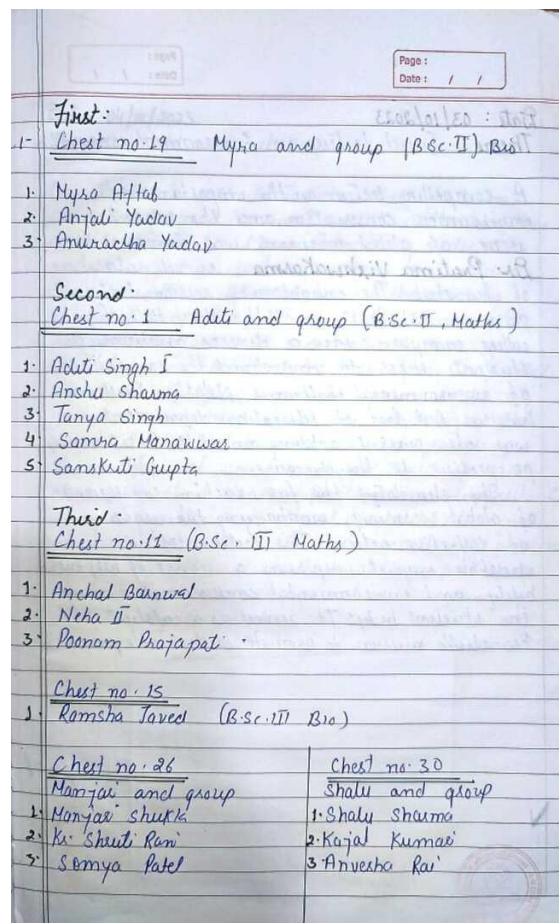 Page :
Date : / /
First:
1- Chest no. 19 Myra and group (B.Sc. II) Bio
1. Myra Aftab
2. Anjali Yadav
3. Anuradha Yadav
Second.
Chest no. 1 Aditi and group (B.Sc. II, Maths)
1. Aditi Singh I
2. Anshu Sharma
3. Tanya Singh
4. Samra Manawwar
5. Sanskriti Gupta
Third.
Chest no. 11 (B.Sc. III Maths)
1. Anchal Barnwal
2. Neha II
3. Poonam Prajapati.
Chest no. 15
1. Ramsha Javed (B.Sc. III Bio)
Chest no. 26
Manjari and group
1. Manjari Shukla
2. Kr. Shruti Rani
3. Somya Patel
Chest no. 30
Shalu and group
1. Shalu Sharma
2. Kajal Kumari
3 Anvesha Rai